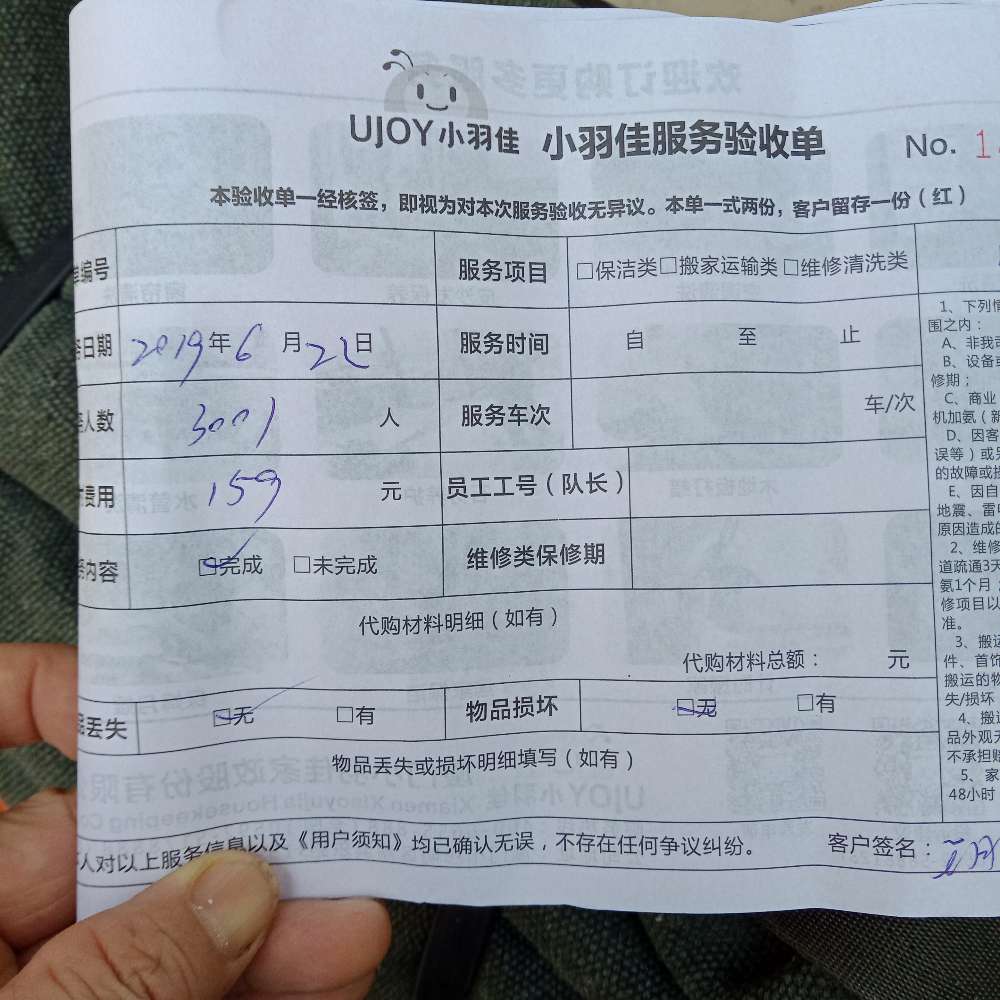 UJOY小羽佳 小羽佳服务验收单 No. 1
本验收单一经核签，即视为对本次服务验收无异议。本单一式两份，客户留存一份（红）
编号 服务项目 □保洁类□搬家运输类□维修清洗类
日期 2019年6月22日 服务时间 自 至 止
人数 3001 人 服务车次 车/次
费用 159 元 员工工号（队长）
内容 ☑完成 □未完成 维修类保修期
代购材料明细（如有）
代购材料总额： 元
丢失 ☑无 □有 物品损坏 ☑无 □有
物品丢失或损坏明细填写（如有）
人对以上服务信息以及《用户须知》均已确认无误，不存在任何争议纠纷。 客户签名：
1、下列情
围之内：
A、非我司
B、设备或
修期；
C、商业
机加氨（新
D、因客
误等）或另
的故障或损
E、因自
地震、雷电
原因造成的
2、维修
道疏通3天
氨1个月；
修项目以
准。
3、搬运
件、首饰
搬运的物
失/损坏
4、搬运
品外观无
不承担赔
5、家
48小时